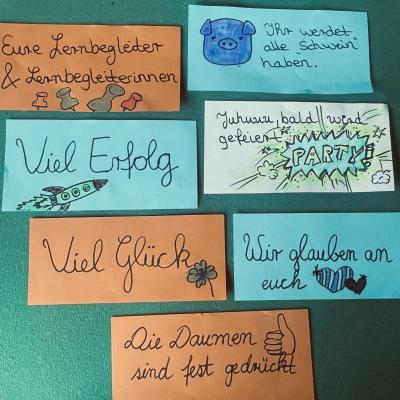 Eure Lernbegleiter
& Lernbegleiterinnen
Ihr werdet
alle "Schwein"
haben.
Viel Erfolg
Juhuuu, bald wird
gefeiert
PARTY!
Viel Glück
Wir glauben an
euch
Die Daumen
sind fest gedrückt